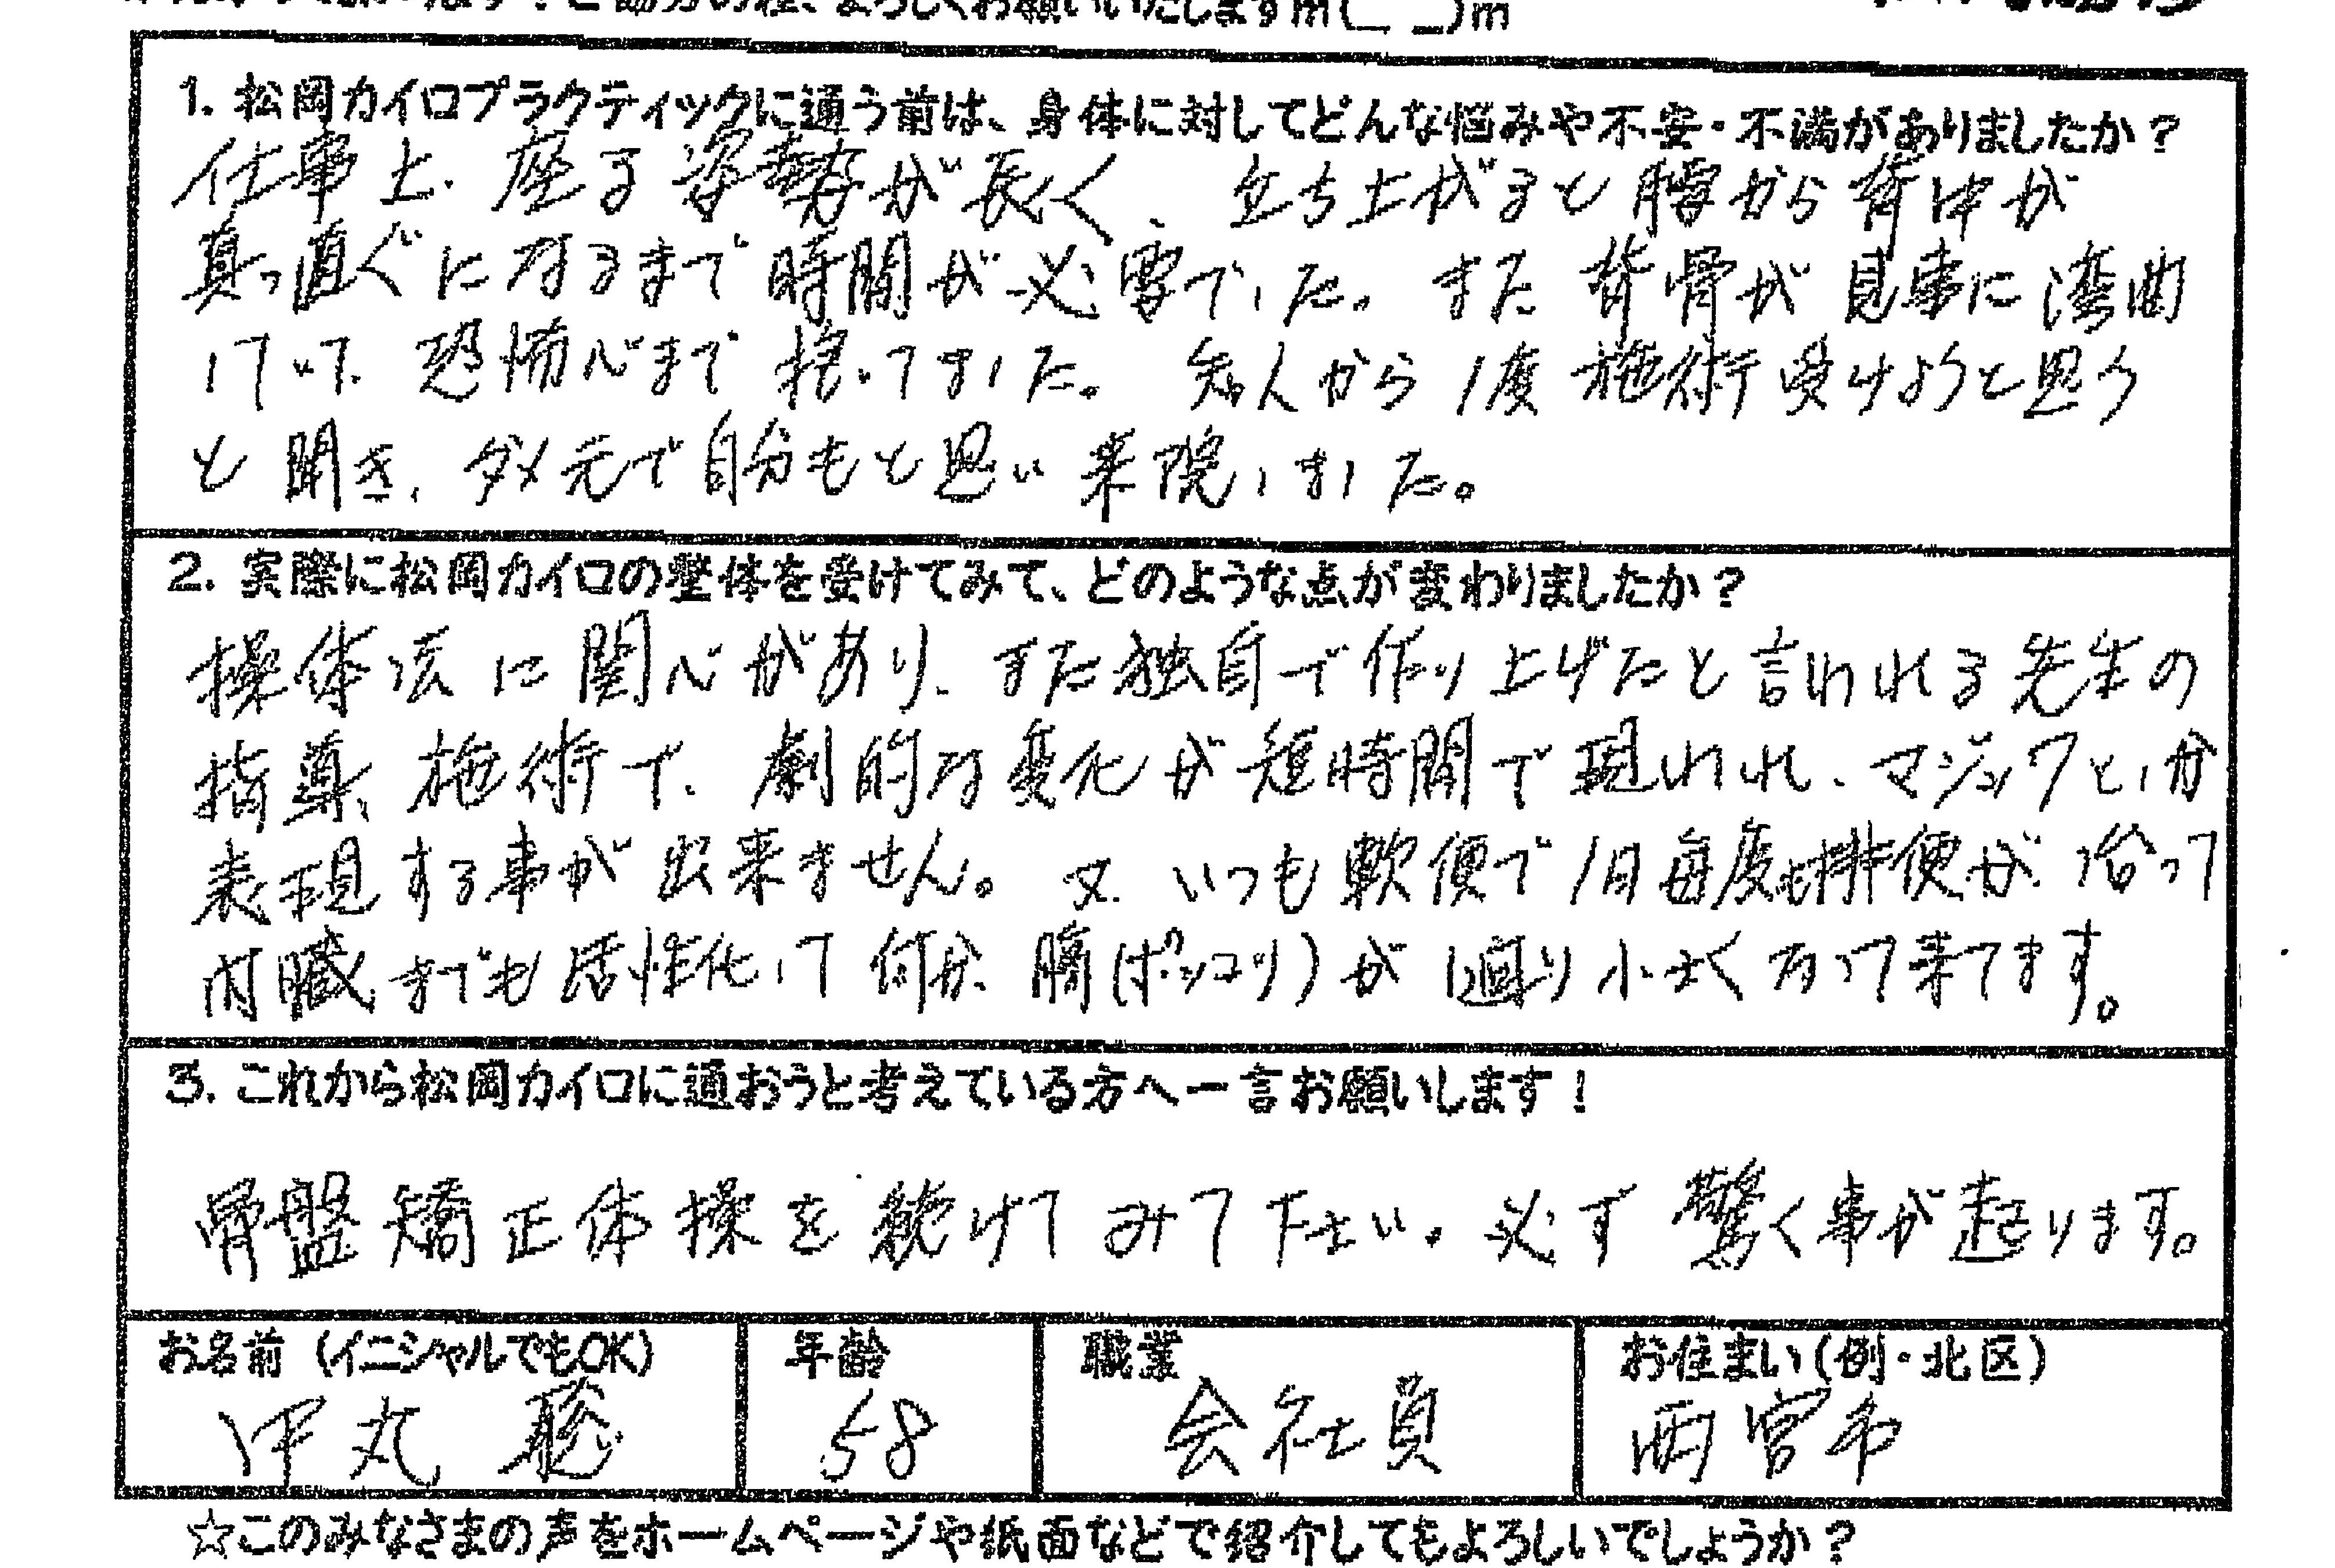 よろしくお願いいたしますm(_ _)m
1. 松岡カイロプラクティックに通う前は、身体に対してどんな悩みや不安・不満がありましたか？
仕事上、座る姿勢が長く、立ち上がると腰から背中が
真っ直ぐになるまで時間が必要でした。また背骨が見事に湾曲
していて、恐怖心まで抱いてました。知人から1度施術受けようと思う
と聞き、ダメ元で自分もと思い来院しました。
2. 実際に松岡カイロの整体を受けてみて、どのような点が変わりましたか？
操体法に関心があり、また独自で作り上げたと言われる先生の
指導、施術で、劇的な変化が短時間で現われれ、マジックとしか
表現する事が出来ません。又、いつも軟便で1日毎度も排便が、治って
内臓までも活性化して何か、腸(ポッコリ)が 小さくなって来てます。
3. これから松岡カイロに通おうと考えている方へ一言お願いします！
骨盤矯正体操を続けてみて下さい。必ず驚く事が起ります。
お名前（イニシャルでもOK） 年齢 職業 お住まい（例・北区）
伊丸 聡 58 会社員 西宮市
☆このみなさまの声をホームページや紙面などで紹介してもよろしいでしょうか？